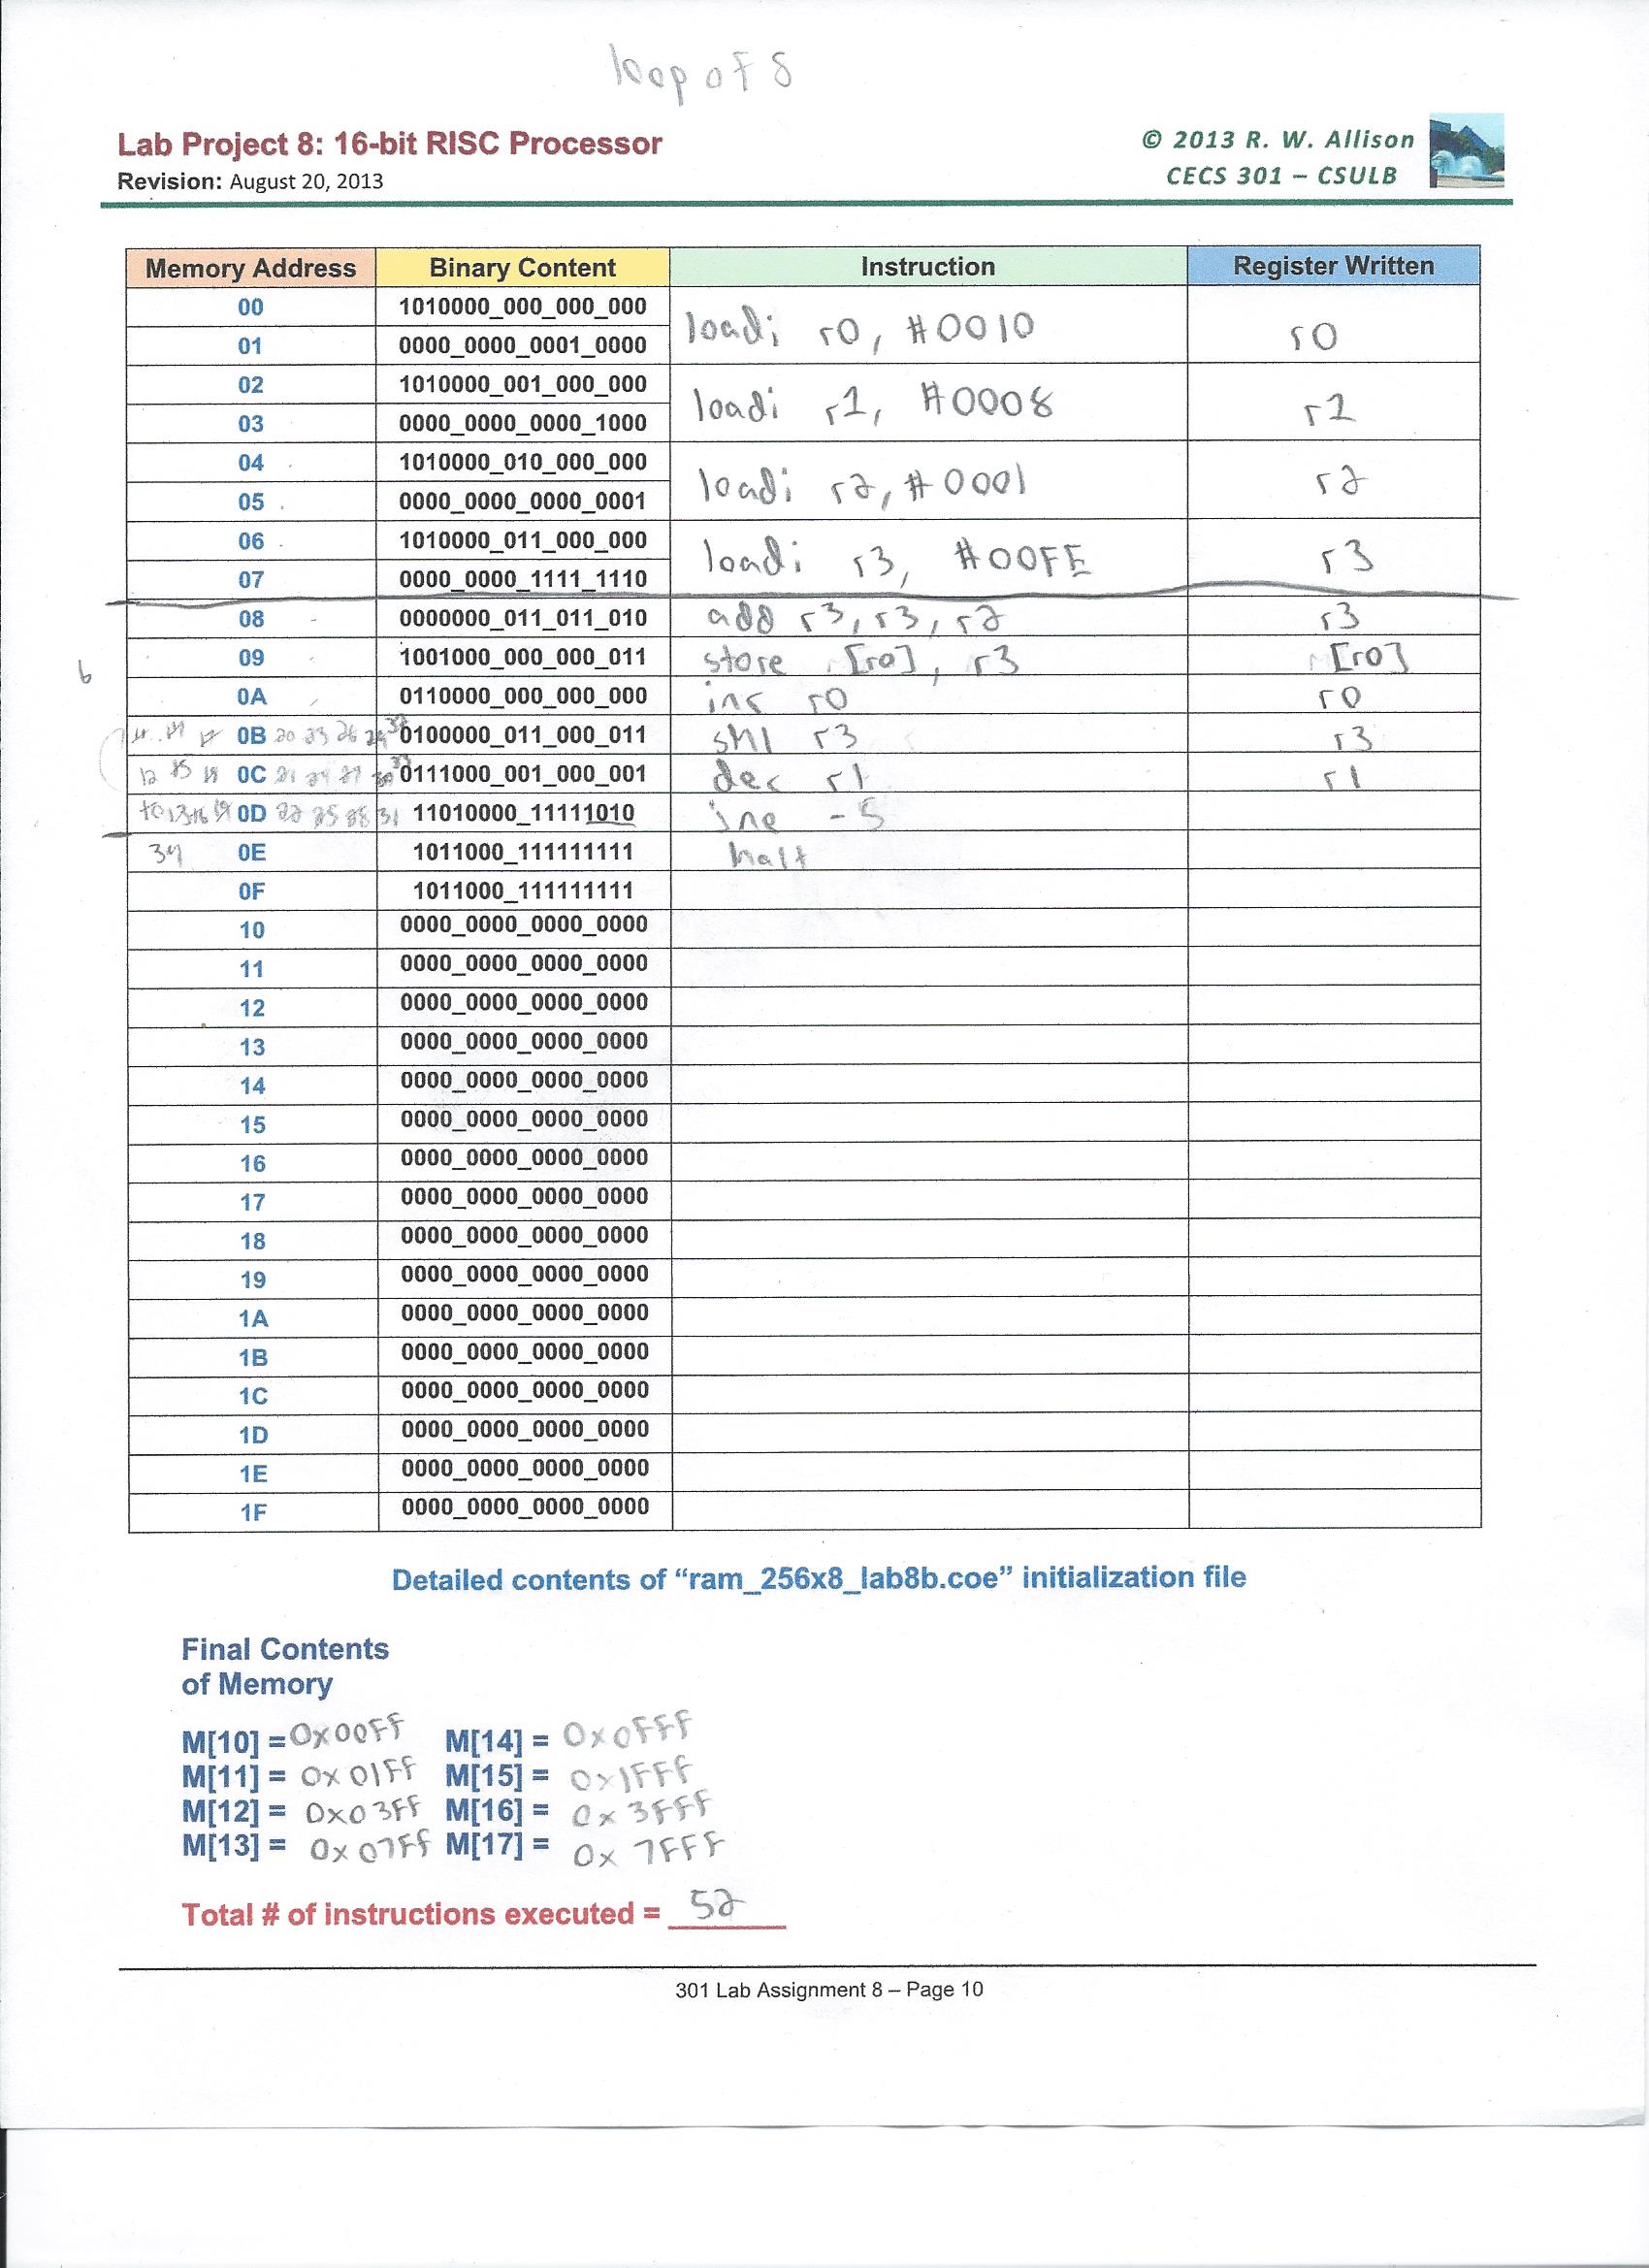 loop of 8
Lab Project 8: 16-bit RISC Processor
Revision: August 20, 2013
© 2013 R. W. Allison
CECS 301 – CSULB
Memory Address Binary Content Instruction Register Written
00 1010000_000_000_000 loadi r0, #0010 r0
01 0000_0000_0001_0000
02 1010000_001_000_000 loadi r1, #0008 r1
03 0000_0000_0000_1000
04 1010000_010_000_000 loadi r2, #0001 r2
05 0000_0000_0000_0001
06 1010000_011_000_000 loadi r3, #00FE r3
07 0000_0000_1111_1110
08 0000000_011_011_010 add r3, r3, r2 r3
09 1001000_000_000_011 store [r0], r3 [r0]
6
0A 0110000_000_000_000 inc r0 r0
0B 20 23 26 0100000_011_000_011 shl r3 r3
12 15 18 0C 21 24 27 30 33 0111000_001_000_001 dec r1 r1
10 13 16 19 0D 22 25 28 31 11010000_11111010 jne -5
34 0E 1011000_111111111 halt
0F 1011000_111111111
10 0000_0000_0000_0000
11 0000_0000_0000_0000
12 0000_0000_0000_0000
13 0000_0000_0000_0000
14 0000_0000_0000_0000
15 0000_0000_0000_0000
16 0000_0000_0000_0000
17 0000_0000_0000_0000
18 0000_0000_0000_0000
19 0000_0000_0000_0000
1A 0000_0000_0000_0000
1B 0000_0000_0000_0000
1C 0000_0000_0000_0000
1D 0000_0000_0000_0000
1E 0000_0000_0000_0000
1F 0000_0000_0000_0000
Detailed contents of “ram_256x8_lab8b.coe” initialization file
Final Contents
of Memory
M[10] = 0x00FF M[14] = 0x0FFF
M[11] = 0x01FF M[15] = 0x1FFF
M[12] = 0x03FF M[16] = 0x3FFF
M[13] = 0x07FF M[17] = 0x7FFF
Total # of instructions executed = 52
301 Lab Assignment 8 – Page 10